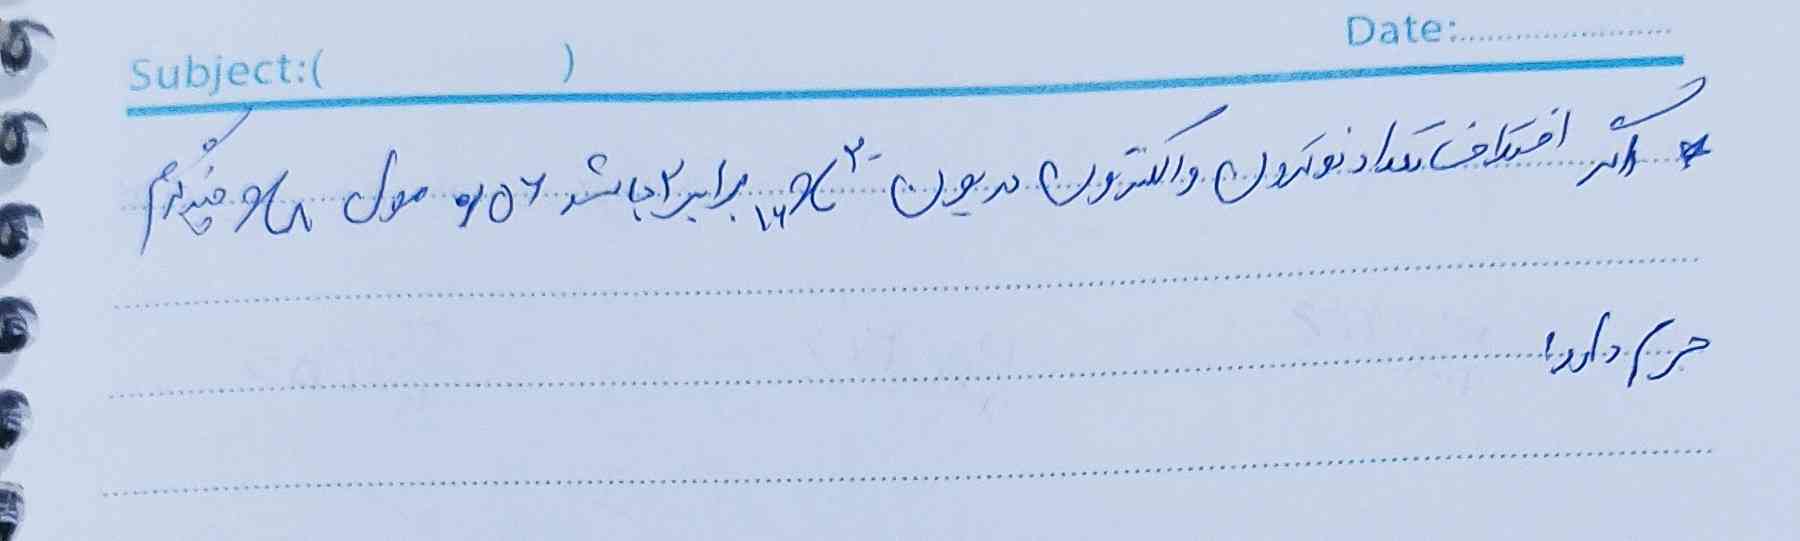 Date:
Subject:( )
* اگر اختلاف تعداد نوترون و الکترون در یون ₁₆X²⁻ برابر ۲ باشد ۰/۵۶ مول X₈ چند گرم
جرم دارد؟